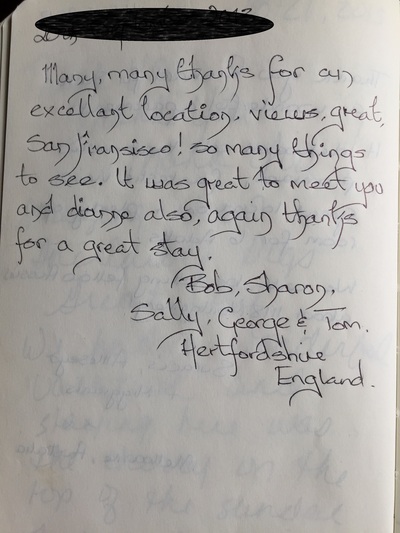 Many, many thanks for an
excellant location, views, great,
San Fransisco! so many things
to see. It was great to meet you
and dianne also, again thanks
for a great stay.
Bob, Sharon,
Sally, George & Tom.
Hertfordshire
England.